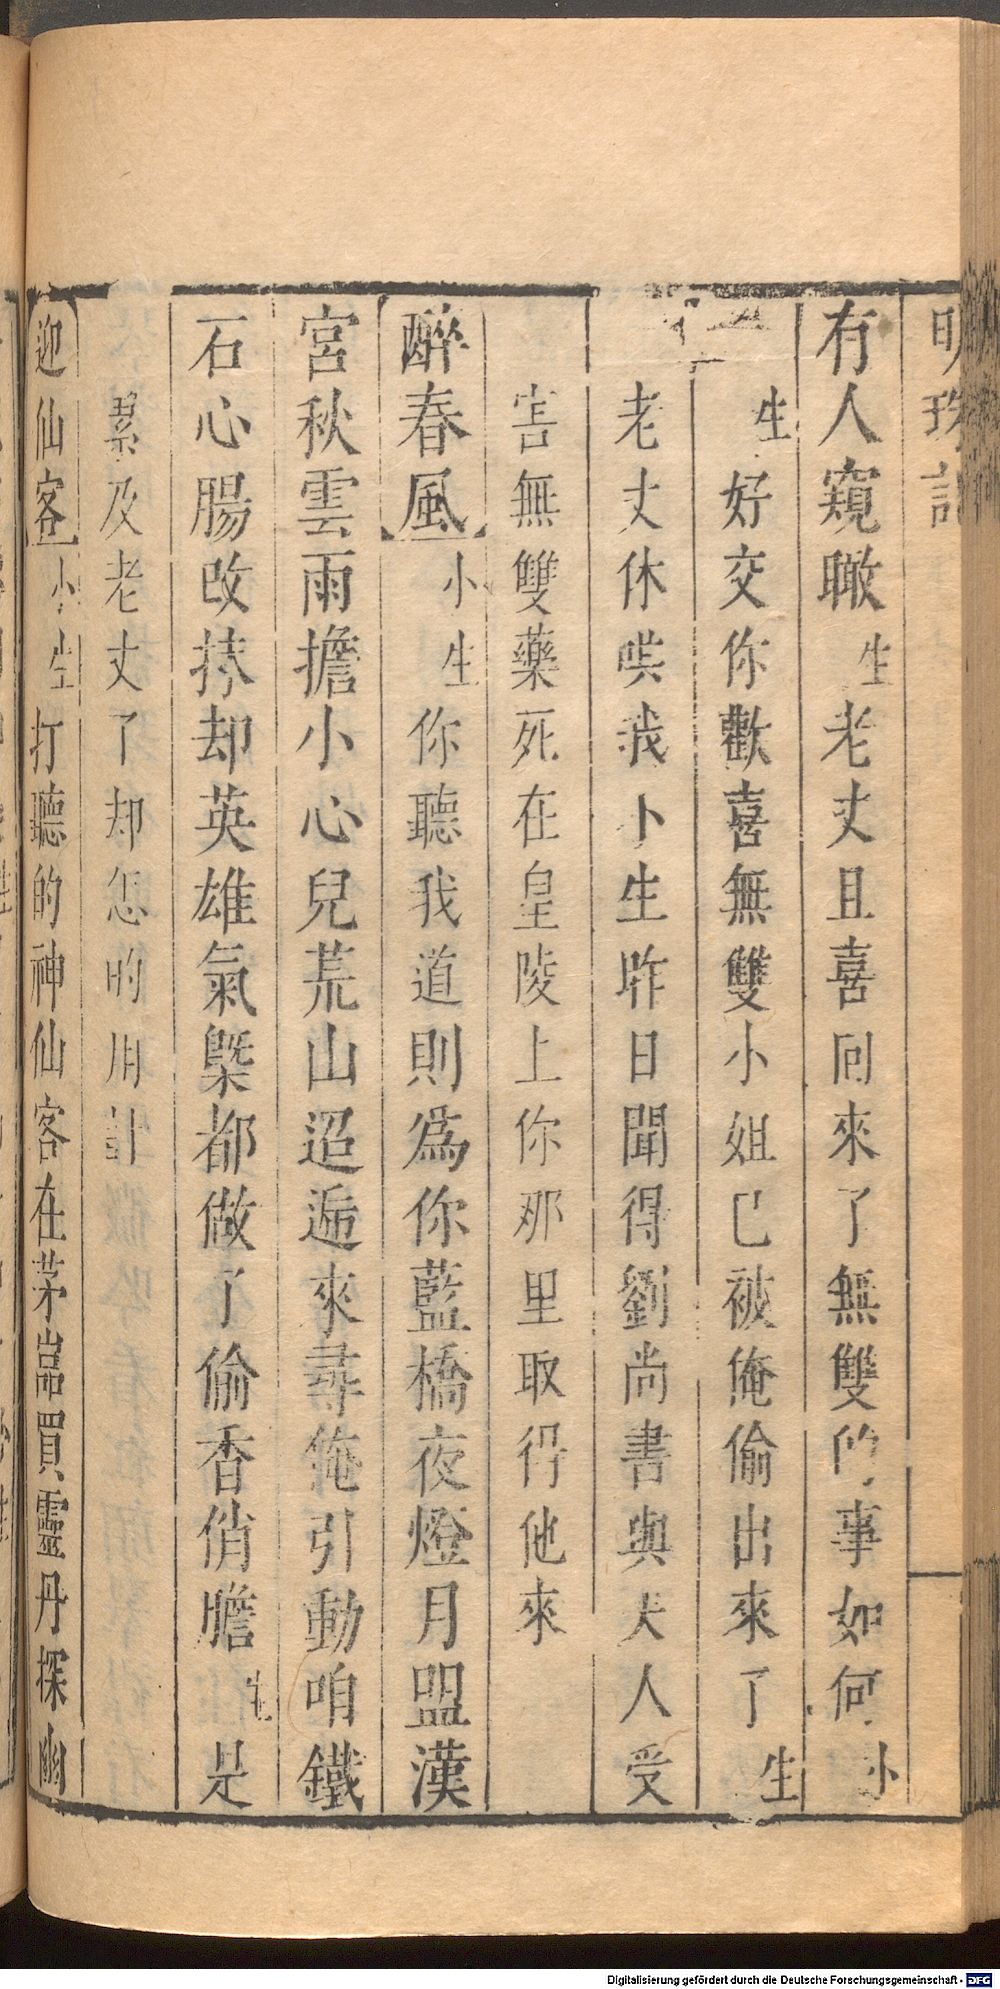 明珠記
有人窺瞰生老丈且喜囘來了無雙的事如何小
生好交你歡喜無雙小姐已被俺偷出來了生
老丈休哄我卜生昨日聞得劉尚書與夫人受
害無雙藥死在皇陵上你那里取得他來
醉春風小生你聽我道則爲你藍橋夜燈月盟漢
宮秋雲雨擔小心兒荒山迢逓來尋俺引動咱鐵
石心腸改抹却英雄氣槩都做了偷香俏膽生是
累及老丈了却怎的用計
迎仙客小生打聽的神仙客在茅岩買靈丹探幽
Digitalisierung gefördert durch die Deutsche Forschungsgemeinschaft - DFG